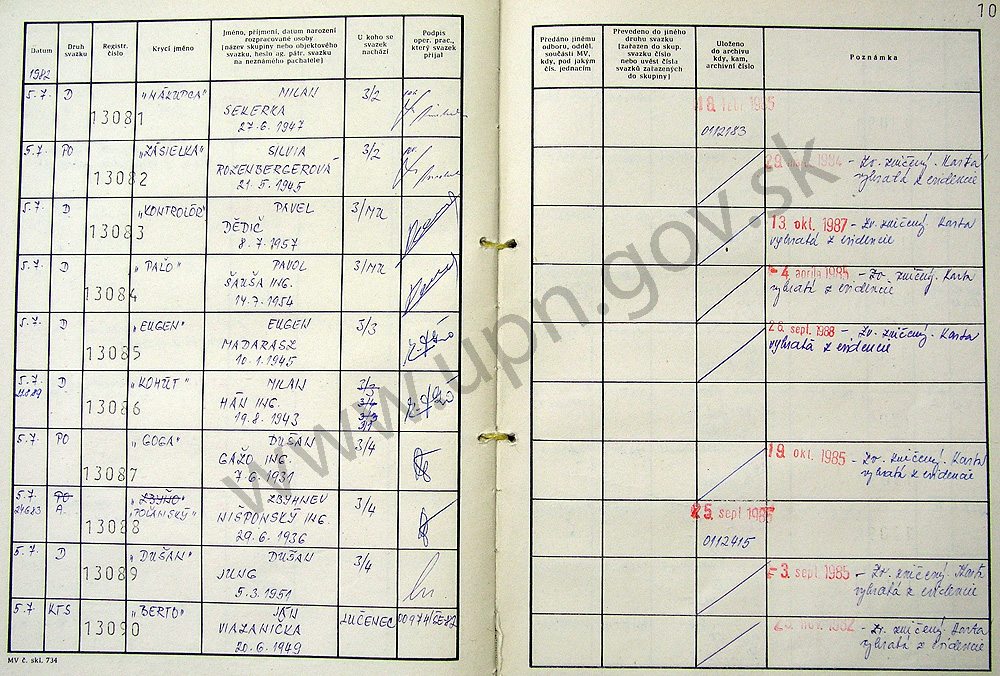 10
Datum
Druh svazku
Registr. číslo
Krycí jméno
Jméno, příjmení, datum narození
rozpracované osoby
[název skupiny nebo objektového
svazku, heslo ag. pátr. svazku
na neznámého pachatele]
U koho se
svazek
nachází
Podpis
oper. prac.,
který svazek
přijal
Předáno jinému
odboru, odděl.
součásti MV,
kdy, pod jakým
čís. jednacím
Převedeno do jiného
druhu svazku
[zařazen do skup.
svazku číslo
nebo uvést čísla
svazků zařazených
do skupiny]
Uloženo
do archivu
kdy, kam,
archivní číslo
Poznámka
1982
5.7. D 13081 "NÁKUPCA" MILAN 3/2
SEKERKA
27.6.1947
0112183
5.7. PO 13082 "ZÁSIELKA" SILVIA 3/2
ROZENBERGEROVÁ
21.5.1945
- Zv. zničený. Karta
vybratá z evidencie
5.7. D 13083 "KONTROLÓR" PAVEL 3/MU
DĚDIČ
8.7.1957
13. okt. 1987 - Zv. zničený. Karta
vybratá z evidencie
5.7. D 13084 "PALO" PAVOL 3/MU
ŠAUŠA ING.
14.7.1954
- 4. apríla 1985 - Zv. zničený. Karta
vybratá z evidencie
5.7. D 13085 "EUGEN" EUGEN 5/3
MADARASZ
10.1.1945
26. sept. 1988 - Zv. zničený. Karta
vybratá z evidencie
5.7. D 13086 "KOHÚT" MILAN 3/3
HÁN ING. 3/4
19.8.1943
5.7. PO 13087 "GOGA" DUŠAN 3/4
GAŽO ING.
7.6.1931
19. okt. 1985 - Zv. zničený. Karta
vybratá z evidencie
5.7. PO 13088 "ZBYŇO" ZBYHNEV 3/4
A. "POĽANSKÝ" NIŠPONSKÝ ING.
29.6.1936
25. sept. 1985
0112415
5.7. D 13089 "DUŠAN" DUŠAN 3/4
JUNG
5.3.1951
- 3. sept. 1985 - Zv. zničený. Karta
vybratá z evidencie
5.7 KTS 13090 "BERTO" JÁN LUČENEC
VIAZANIČKA
20.6.1949
- Zv. zničený. Karta
vybratá z evidencie
MV č. skl. 734
www.upn.gov.sk